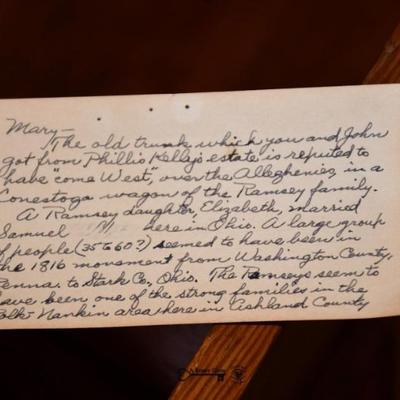 Mary—
The old trunk which you and John
got from Phillis Kelly's estate is reputed to
have "come West", over the Alleghenies, in a
Conestoga wagon of the Ramsey family.
A Ramsey daughter, Elizabeth, married
Samuel here in Ohio. A large group
of people (35 to 60?) seemed to have been in
the 1816 movement from Washington County,
Penna. to Stark Co., Ohio. The Ramseys seem to
have been one of the strong families in the
Polk-Nankin area here in Ashland County